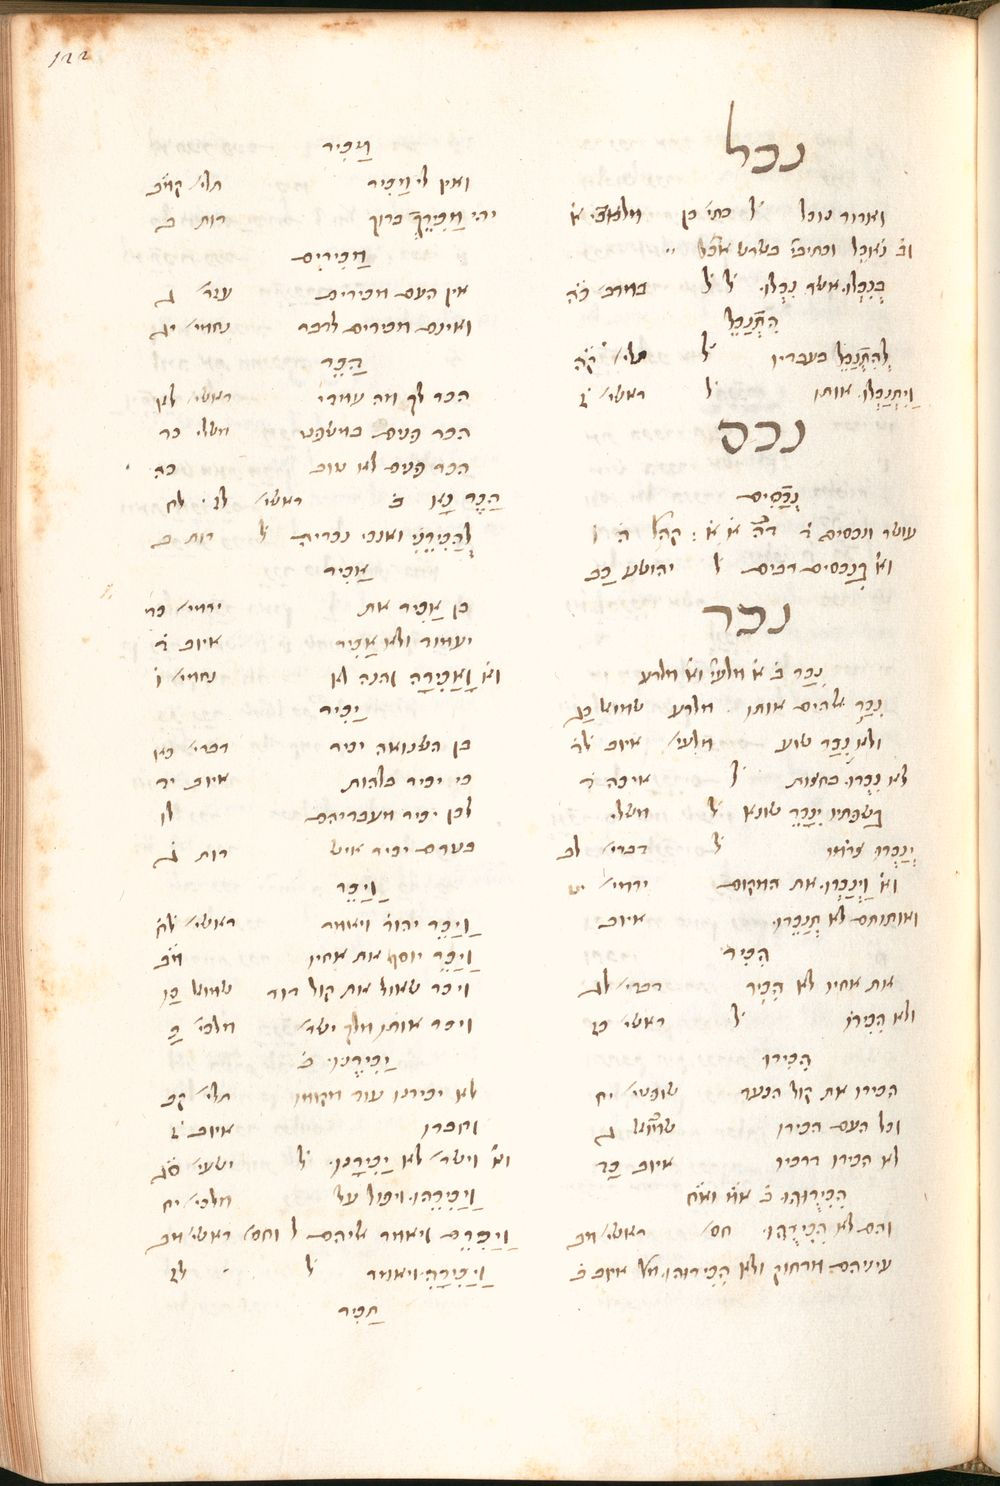 122
נכל
וארור נוכל ל כתי כן מלאכי א
וב נאכל וכתיבי בשרש אכל
בנכליהם אשר נכלו ל ל במדב כה
התנכל
להתנכל בעבדיו ל תלי קה
ויתנכלו אותו ל ראשי
נכס
נכסים
עושר ונכסים ד דה א א קהל ה ו
וא בנכסים רבים ל יהושע כב
נכר
נכר ב א מלעי וא מלרע
נכר אלהים אותו מלרע שמוא כג
ולא נכר שוע מלעי איוב לד
לא נכרו בחצות ל איכה ד
בשפתיו ינכר שונא ל משלי
ינכרו צרימו ל דברי לב
וא וינכרו את המקום ירמי יט
ואותותם לא תנכרו איוב
הכיר
את אחיו לא הכיר דברי לג
ולא הכירו ל ראשי כז
הכירו
הכירו את קול הנער שופטי יח
וכל העם הכירו ג
לא הכירו דרכיו איוב כד
הכירוהו ב
והם לא הכירוהו חס ראשי מב
עיניהם מרחוק ולא הכירוהו מל איוב ב
מכיר
ואין לי מכיר תלי קמב
יהי מכירך ברוך רות ב
מכירים
אין העם מכירים עזר ג
ואינם מכירים לדבר נחמי יג
הכר
הכר לך מה עמדי ראשי לא
הכר פנים במשפט משלי כד
הכר פנים לא טוב כח
הכר נא ב ראשי לז לח
להכירני ואנכי נכריה ל רות ב
אכיר
כן אכיר את ירמי כד
יעמוד ולא אכיר איוב ד
וא ואכירה והנה לא נחמי ו
יכיר
כן השנואה יכיר דברי כא
כי יכיר בלהות איוב יד
לכן יכיר מעבדיהם לד
בטרם יכיר איש רות ג
ויכר
ויכר יהודה ויאמר ראשי לח
ויכר יוסף את אחיו מב
ויכר שאול את קול דוד שמוא כו
ויכר אותו מלך ישר מלכי כ
יכירנו ב
לא יכירנו עוד מקומו תלי קג
וחברו איוב ז
וא וישר לא יכירנו ל ישעי סג
ויכירהו ויפול על מלכי יח
ויכרם ויאמר אליהם ל וחס ראשי מב
ויכירה ויאמר ל לז
תכיר